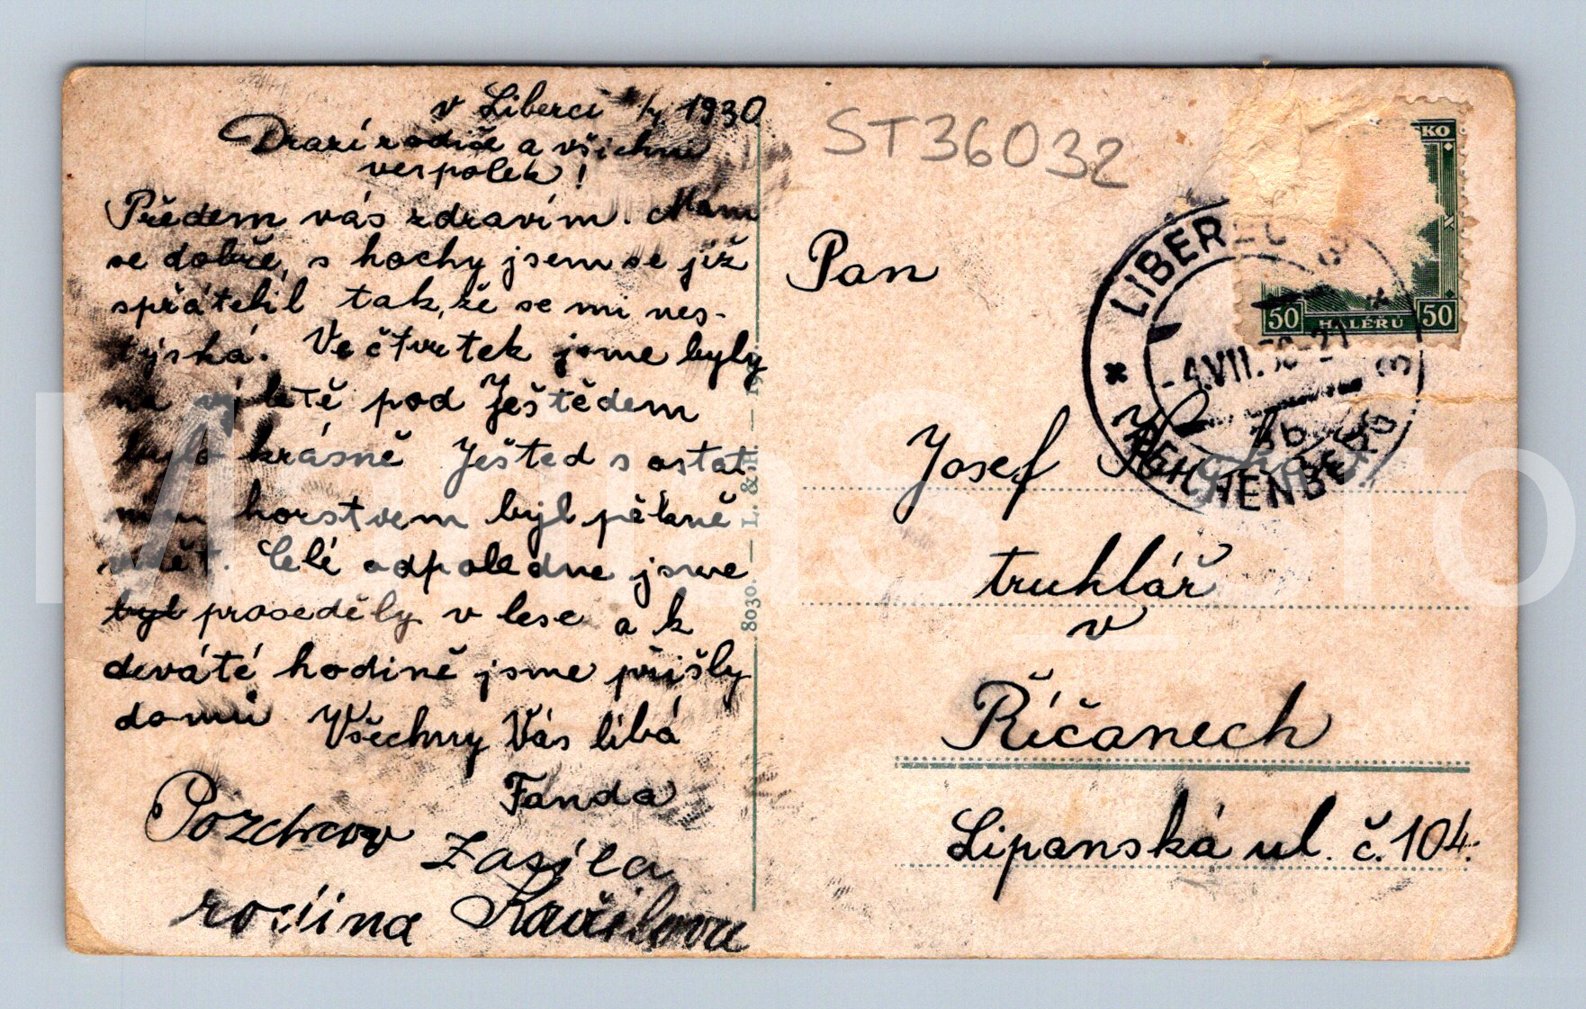 v Liberci 1930
Drazí rodiče a všichni
vespolek!
Předem vás zdravím. Mám
se dobře, s hochy jsem se již
spřátelil tak, že se mi nes-
týská. Ve čtvrtek jsme byly
na výletě pod Ještědem
bylo krásně Ještěd s ostat
ním horstvem byl pěkně
vidět. Celé odpoledne jsme
byl proseděly v lese a k
deváté hodině jsme přišly
domů Všechny Vás líbá
Fanda
Pozdrav
Zasíla
rodina
8030. — L. & H. — 19
ST36032
KO
50 HALÉŘŮ 50
LIBEREC
-4.VII.30-21
3b
REICHENBERG
Pan
Josef
truhlář
v
Říčanech
Lipanská ul. č. 104.